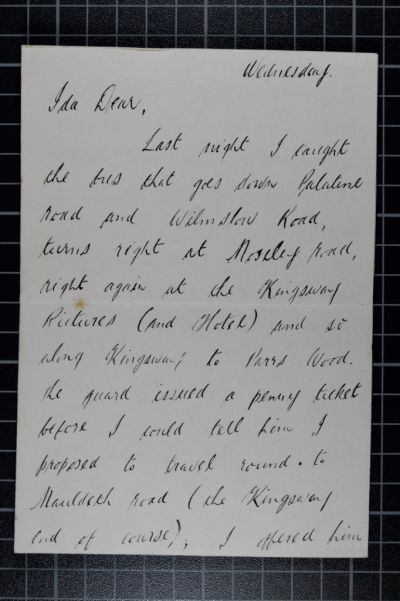 Wednesday.
Ida Dear,
Last night I caught
the bus that goes down Palatine
road and Wilmslow Road,
turns right at Moseley road,
right again at the Kingsway
Pictures (and Hotel) and so
along Kingsway to Parrs Wood.
The guard issued a penny ticket
before I could tell him I
proposed to travel round to
Mauldeth road (the Kingsway
end of course); I offered him